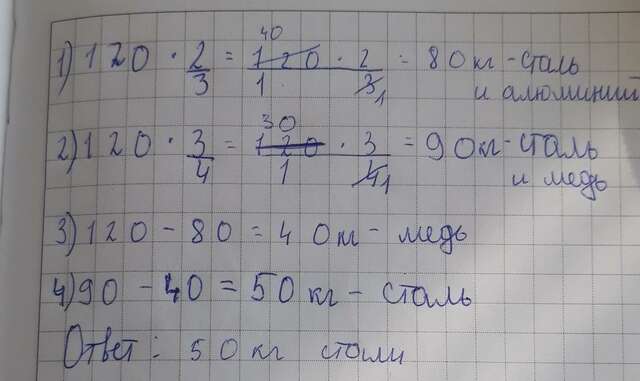 40
1) 120 · 2/3 = 120 · 2 / 1 · 3 1 = 80 кг - сталь
и алюминий
30
2) 120 · 3/4 = 120 · 3 / 1 · 4 1 = 90 кг - сталь
и медь
3) 120 - 80 = 40 кг - медь
4) 90 - 40 = 50 кг - сталь
Ответ: 50 кг стали